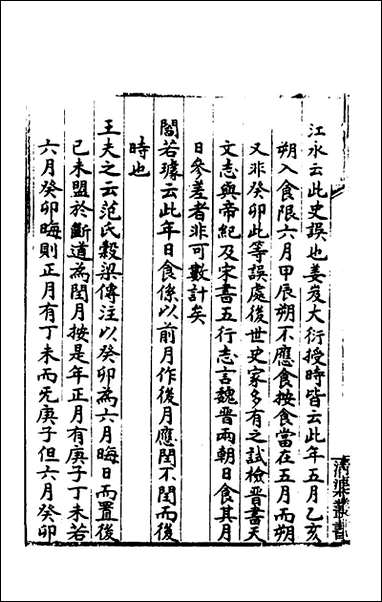 江永云此史誤也姜岌大衍授時皆云此年五月乙亥
朔入食限六月甲辰朔不應食按食當在五月而朔
又非癸卯此等誤處後世史家多有之試檢晉書天
文志與帝紀及宋書五行志言魏晉兩朝日食其月
日參差者非可數計矣
閻若璩云此年日食係以前月作後月應閏不閏而後
時也
王夫之云范氏穀梁傳注以癸卯為六月晦日而置後
己未盟於斷道為閏月按是年正月有庚子丁未若
六月癸卯晦則正月有丁未而无庚子但六月癸卯
叢書